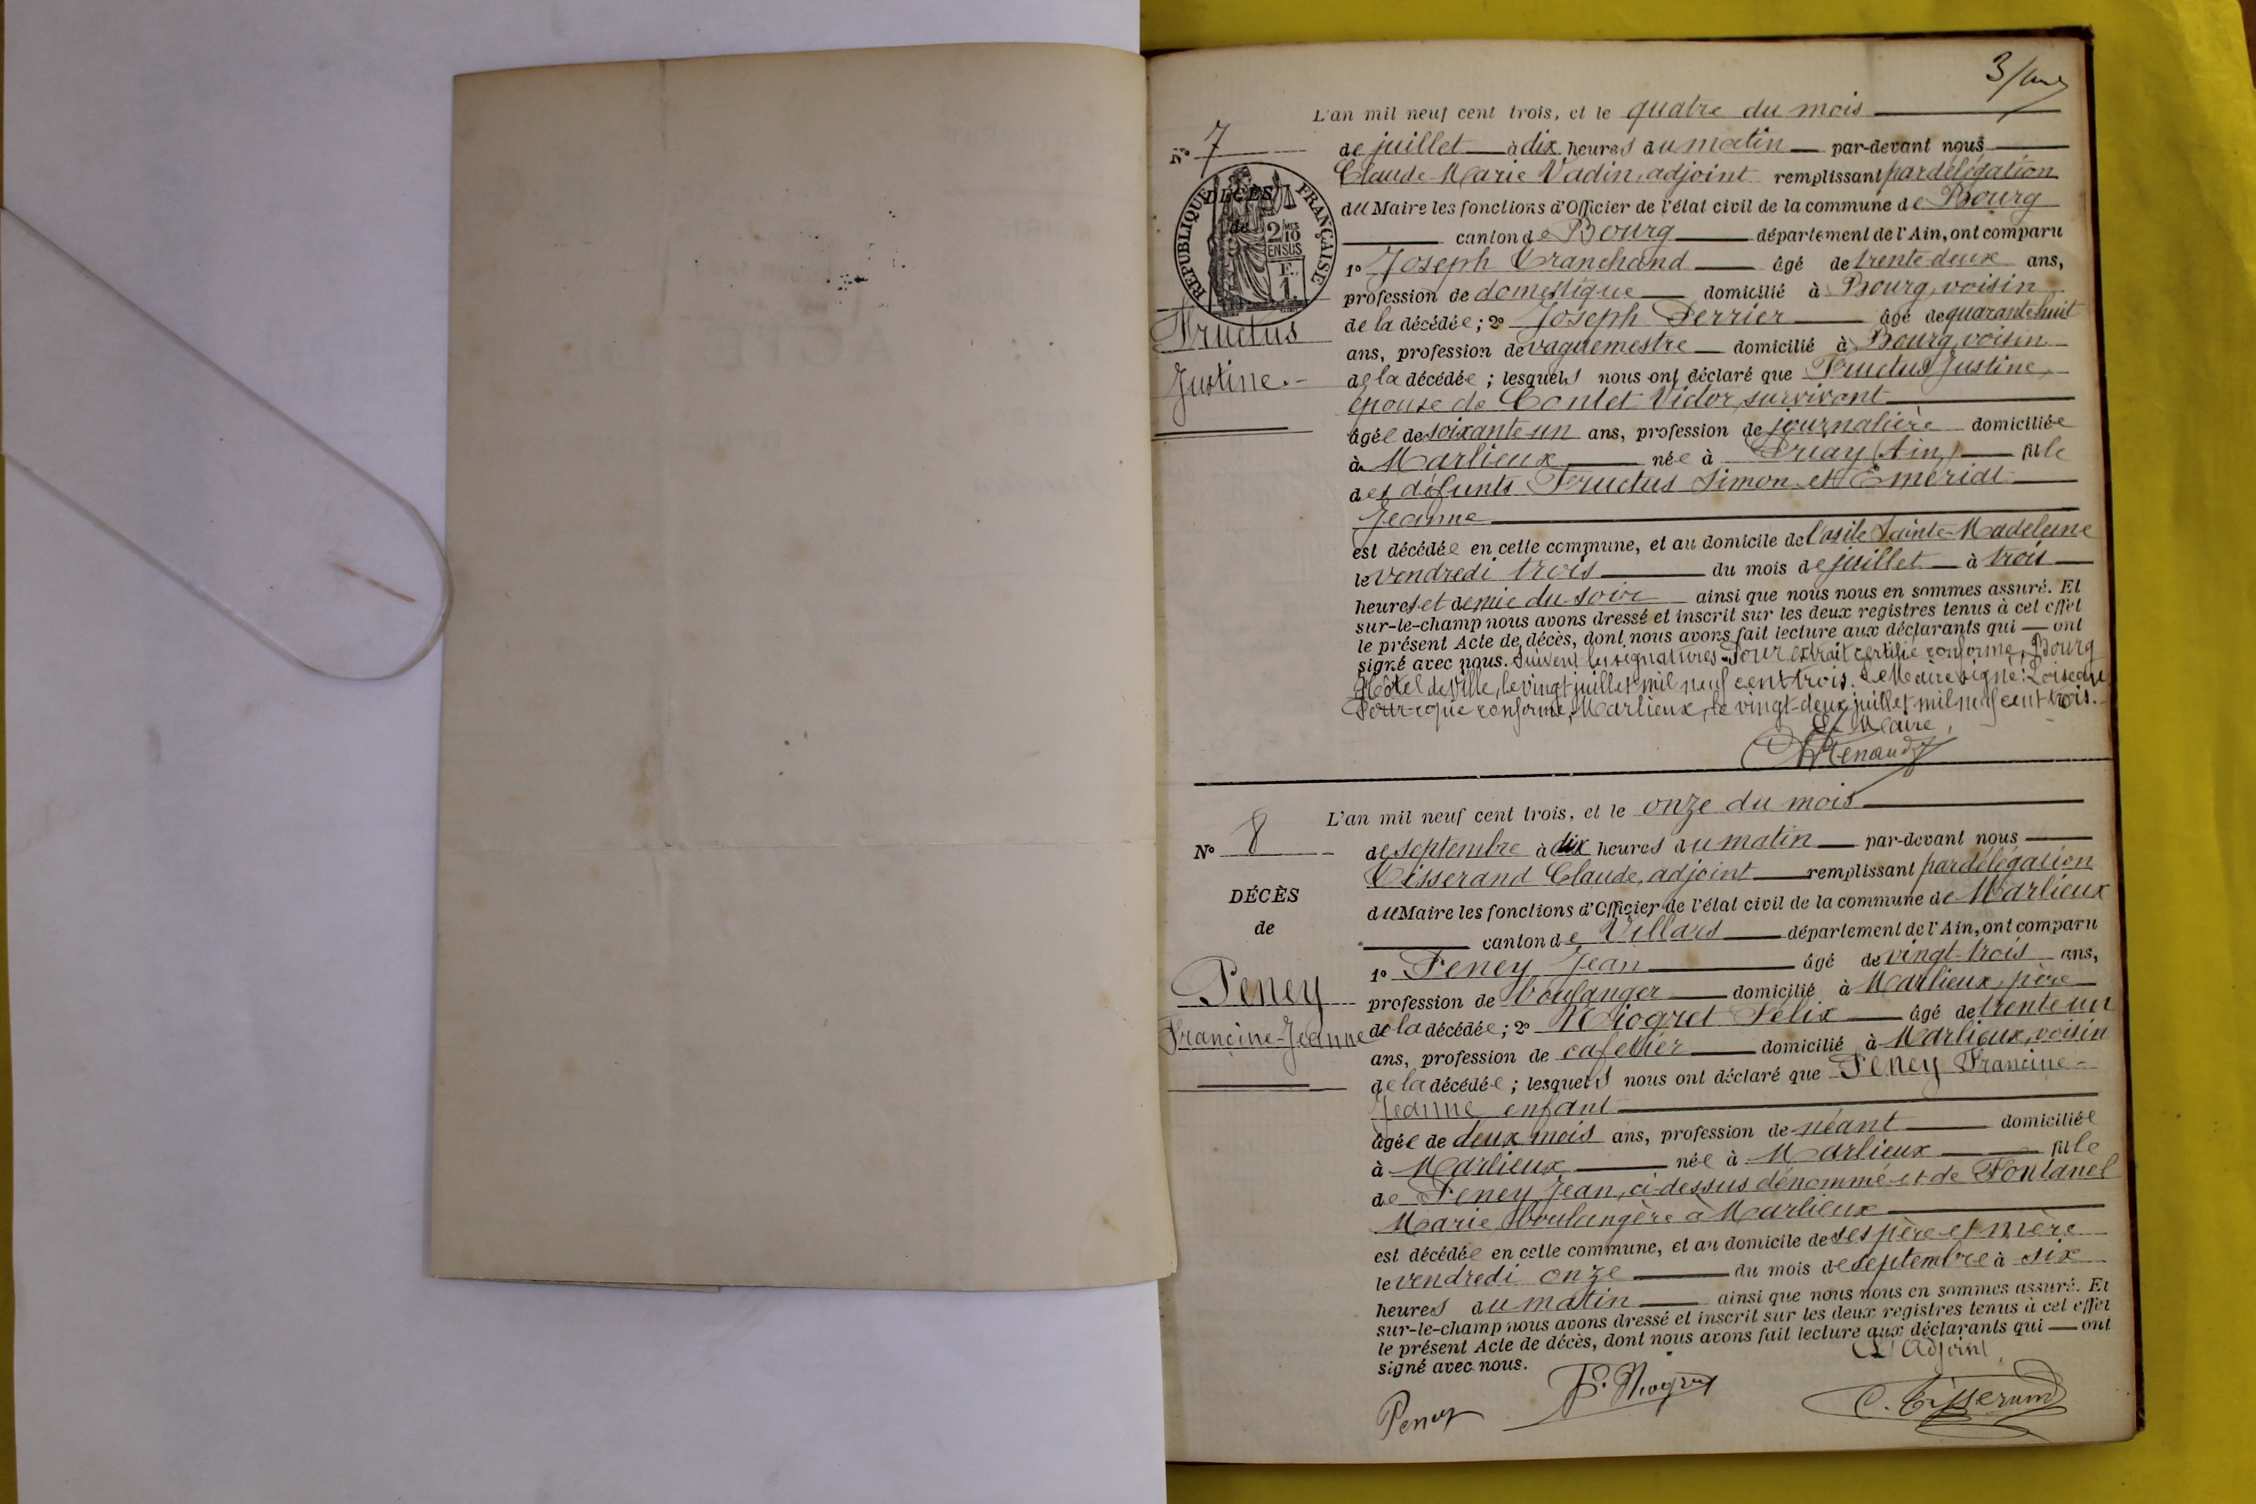 3
L'an mil neuf cent trois, et le quatre du mois
N° 7
de juillet à dix heures du matin par-devant nous
Claude-Marie Vadin, adjoint remplissant par délégation
du Maire les fonctions d'Officier de l'état civil de la commune de Bourg
canton de Bourg département de l'Ain, ont comparu
RÉPUBLIQUE FRANÇAISE
DÉCÈS
de
2/10
EN SUS
1° Joseph Tranchand âgé de trente-deux ans,
profession de domestique domicilié à Bourg, voisin
Fructus
Justine.
de la décédée ; 2° Joseph Perrier âgé de quarante-huit
ans, profession de vaguemestre domicilié à Bourg, voisin
de la décédée ; lesquels nous ont déclaré que Fructus Justine,
épouse de Contet Victor, survivant
âgée de soixante un ans, profession de journalière domiciliée
à Marlieux née à Druay (Ain) fille
des défunts Fructus Simon et Emeriat
Jeanne
est décédée en cette commune, et au domicile de l'asile Sainte-Madeleine
le vendredi trois du mois de juillet à trois
heures et demie du soir ainsi que nous nous en sommes assuré. Et
sur-le-champ nous avons dressé et inscrit sur les deux registres tenus à cet effet
le présent Acte de décès, dont nous avons fait lecture aux déclarants qui ont
signé avec nous. Suivent les signatures. Pour extrait certifié conforme, Bourg
Hôtel de Ville, le vingt juillet mil neuf cent trois. Le Maire signé: Loiseau
Pour copie conforme, Marlieux, le vingt-deux juillet mil neuf cent trois.
Le Maire,
Renaud
L'an mil neuf cent trois, et le onze du mois
N° 8
de septembre à dix heures du matin par-devant nous
Tisserand Claude, adjoint remplissant par délégation
du Maire les fonctions d'Officier de l'état civil de la commune de Marlieux
canton de Villars département de l'Ain, ont comparu
DÉCÈS
de
Peney
Francine-Jeanne
1° Peney Jean âgé de vingt-trois ans,
profession de boulanger domicilié à Marlieux, père
de la décédée ; 2° Niogret Félix âgé de trente un
ans, profession de cafetier domicilié à Marlieux, voisin
de la décédée ; lesquels nous ont déclaré que Peney Francine-
Jeanne enfant
âgée de deux mois ans, profession de néant domiciliée
à Marlieux née à Marlieux fille
de Peney Jean, ci-dessus dénommé et de Fontanel
Marie boulangère à Marlieux
est décédée en cette commune, et au domicile de ses père et mère
le vendredi onze du mois de septembre à six
heures du matin ainsi que nous nous en sommes assuré. Et
sur-le-champ nous avons dressé et inscrit sur les deux registres tenus à cet effet
le présent Acte de décès, dont nous avons fait lecture aux déclarants qui ont
signé avec nous.
L'Adjoint
Peney F. Niogret C. Tisserand